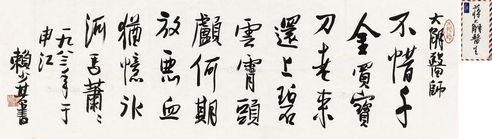 大解醫師
不惜千
金買寶
刀老來
還上碧
雲霄頭
顱何期
放血
猶憶冰
河馬蕭〻
一九八三年于
申江
賴少其書